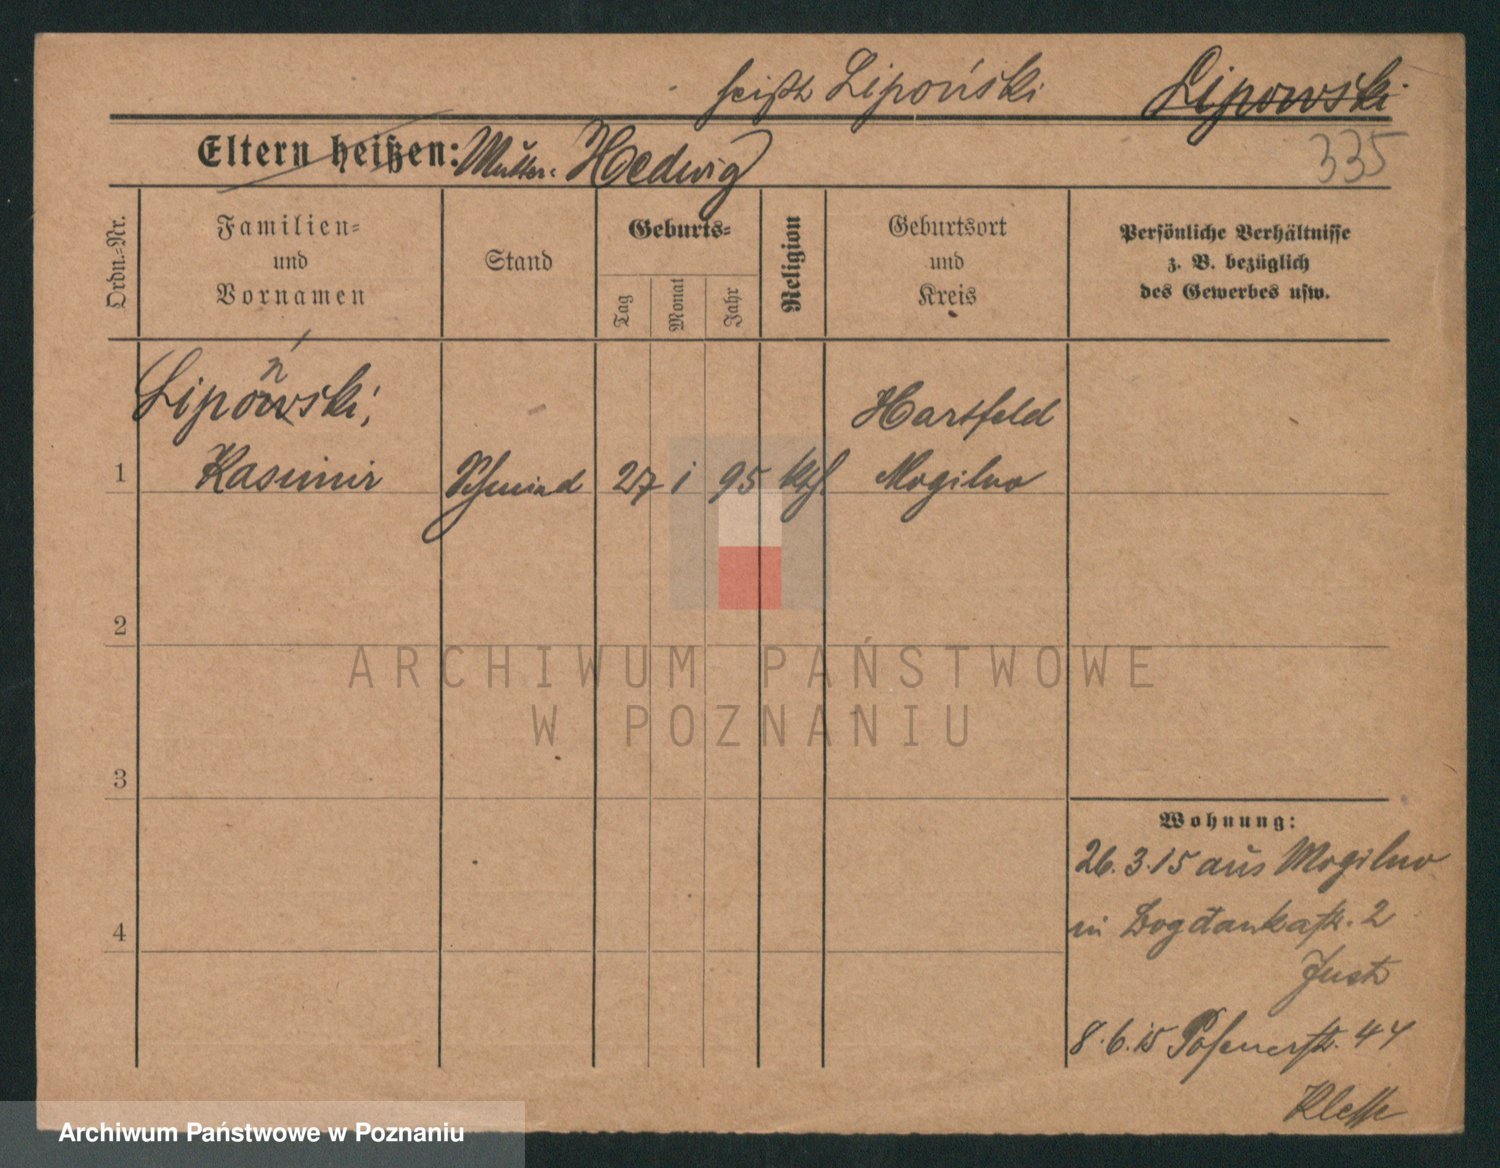 heißt Lipoński Lipowski
Eltern heißen: Mutter: Hedwig
335
Ordn.-Nr.
Familien-
und
Vornamen
Stand
Geburts-
Tag
Monat
Jahr
Religion
Geburtsort
und
Kreis
Persönliche Verhältnisse
z. B. bezüglich
des Gewerbes usw.
Lipoński,
Hartsfeld
1 Kasimir Schmied 27 1 95 kth. Mogilno
2
3
4
Wohnung:
26.3.15 aus Mogilno
in Bogdankastr. 2
8.6.15 Posenerstr. 44
ARCHIWUM PAŃSTWOWE
W POZNANIU
Archiwum Państwowe w Poznaniu